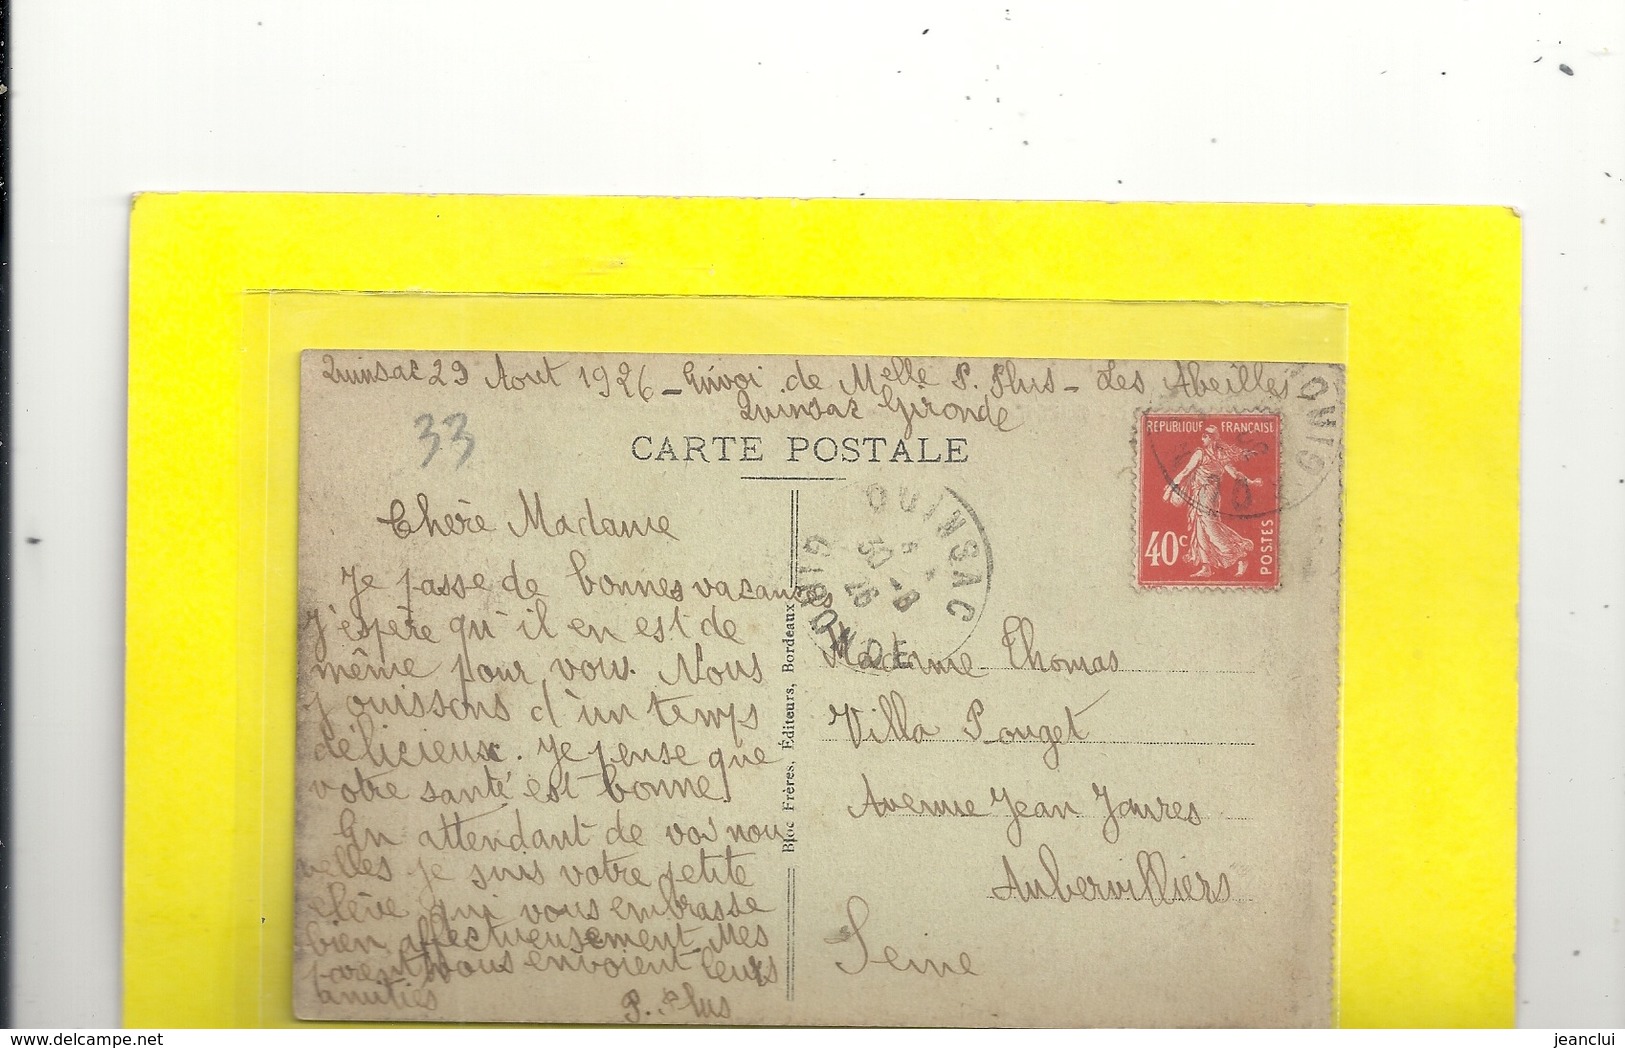 Quinsac 29 Aout 1926 - Envoi de Melle P. Plus - Les Abeilles
Quinsac Gironde
33
CARTE POSTALE
REPUBLIQUE FRANÇAISE
40c
POSTES
QUINSAC
GIRONDE
30 -8
26
Chère Madame
Je passe de bonnes vacances
j'espère qu'il en est de
même pour vous. Nous
jouissons d'un temps
délicieux. Je pense que
votre santé est bonne.
En attendant de vos nou
velles je suis votre petite
élève qui vous embrasse
bien affectueusement. Mes
parents vous envoient leurs
amitiés
P. Plus
Bloc Frères, Éditeurs, Bordeaux
Madame Thomas
Villa Pouget
Avenue Jean Jaures
Aubervilliers
Seine
delcampe.net
jeanclui